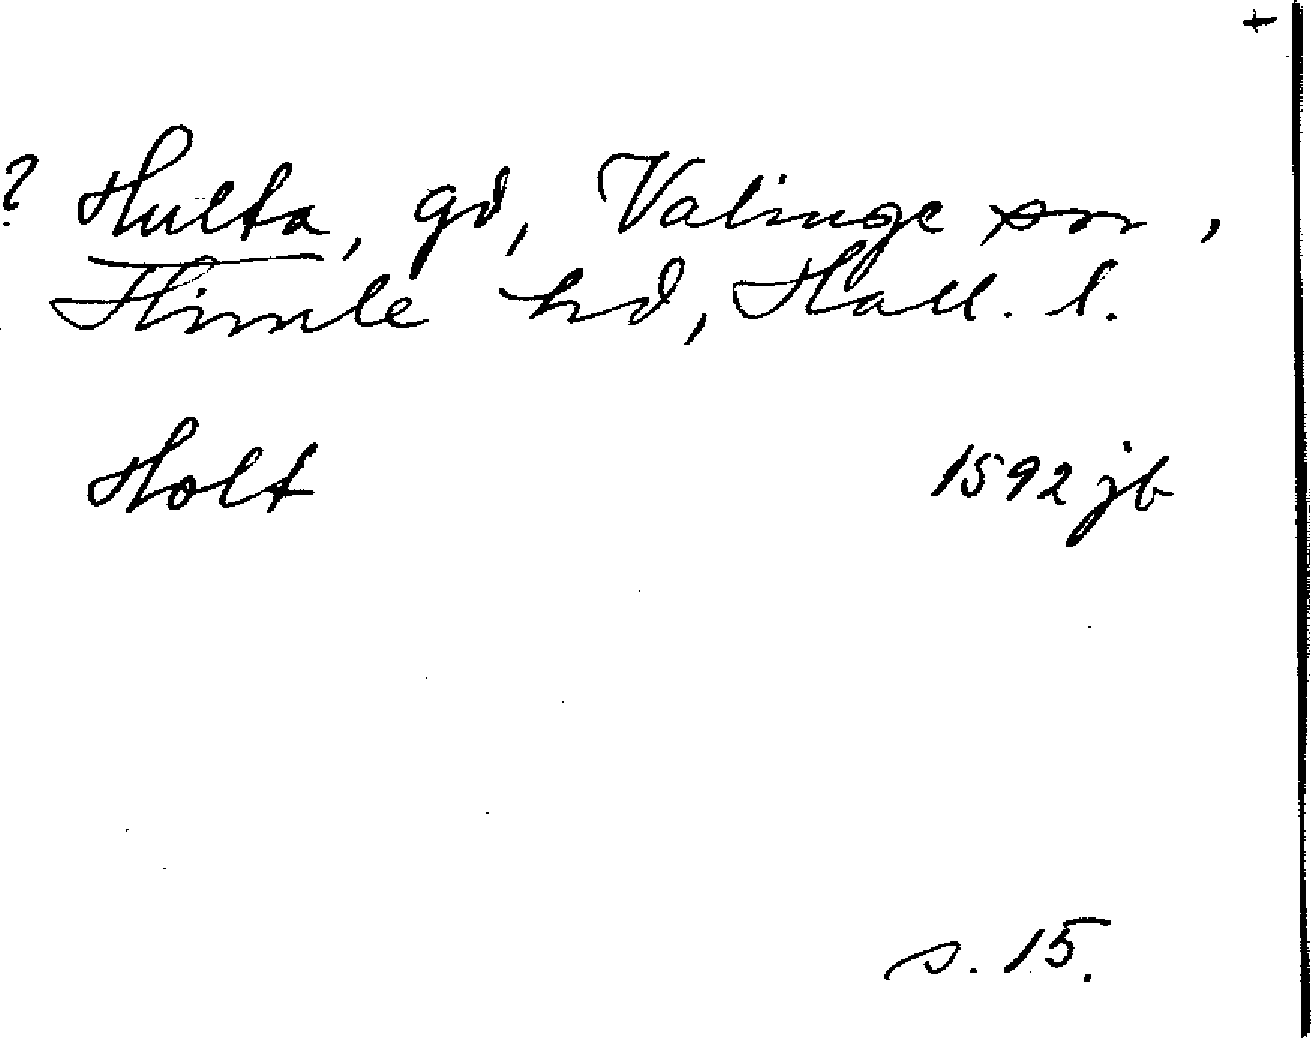 +
? Hulta, gd, Valinge sn,
Himle hd, Hall. l.
Holt 1592 jb
s. 15.